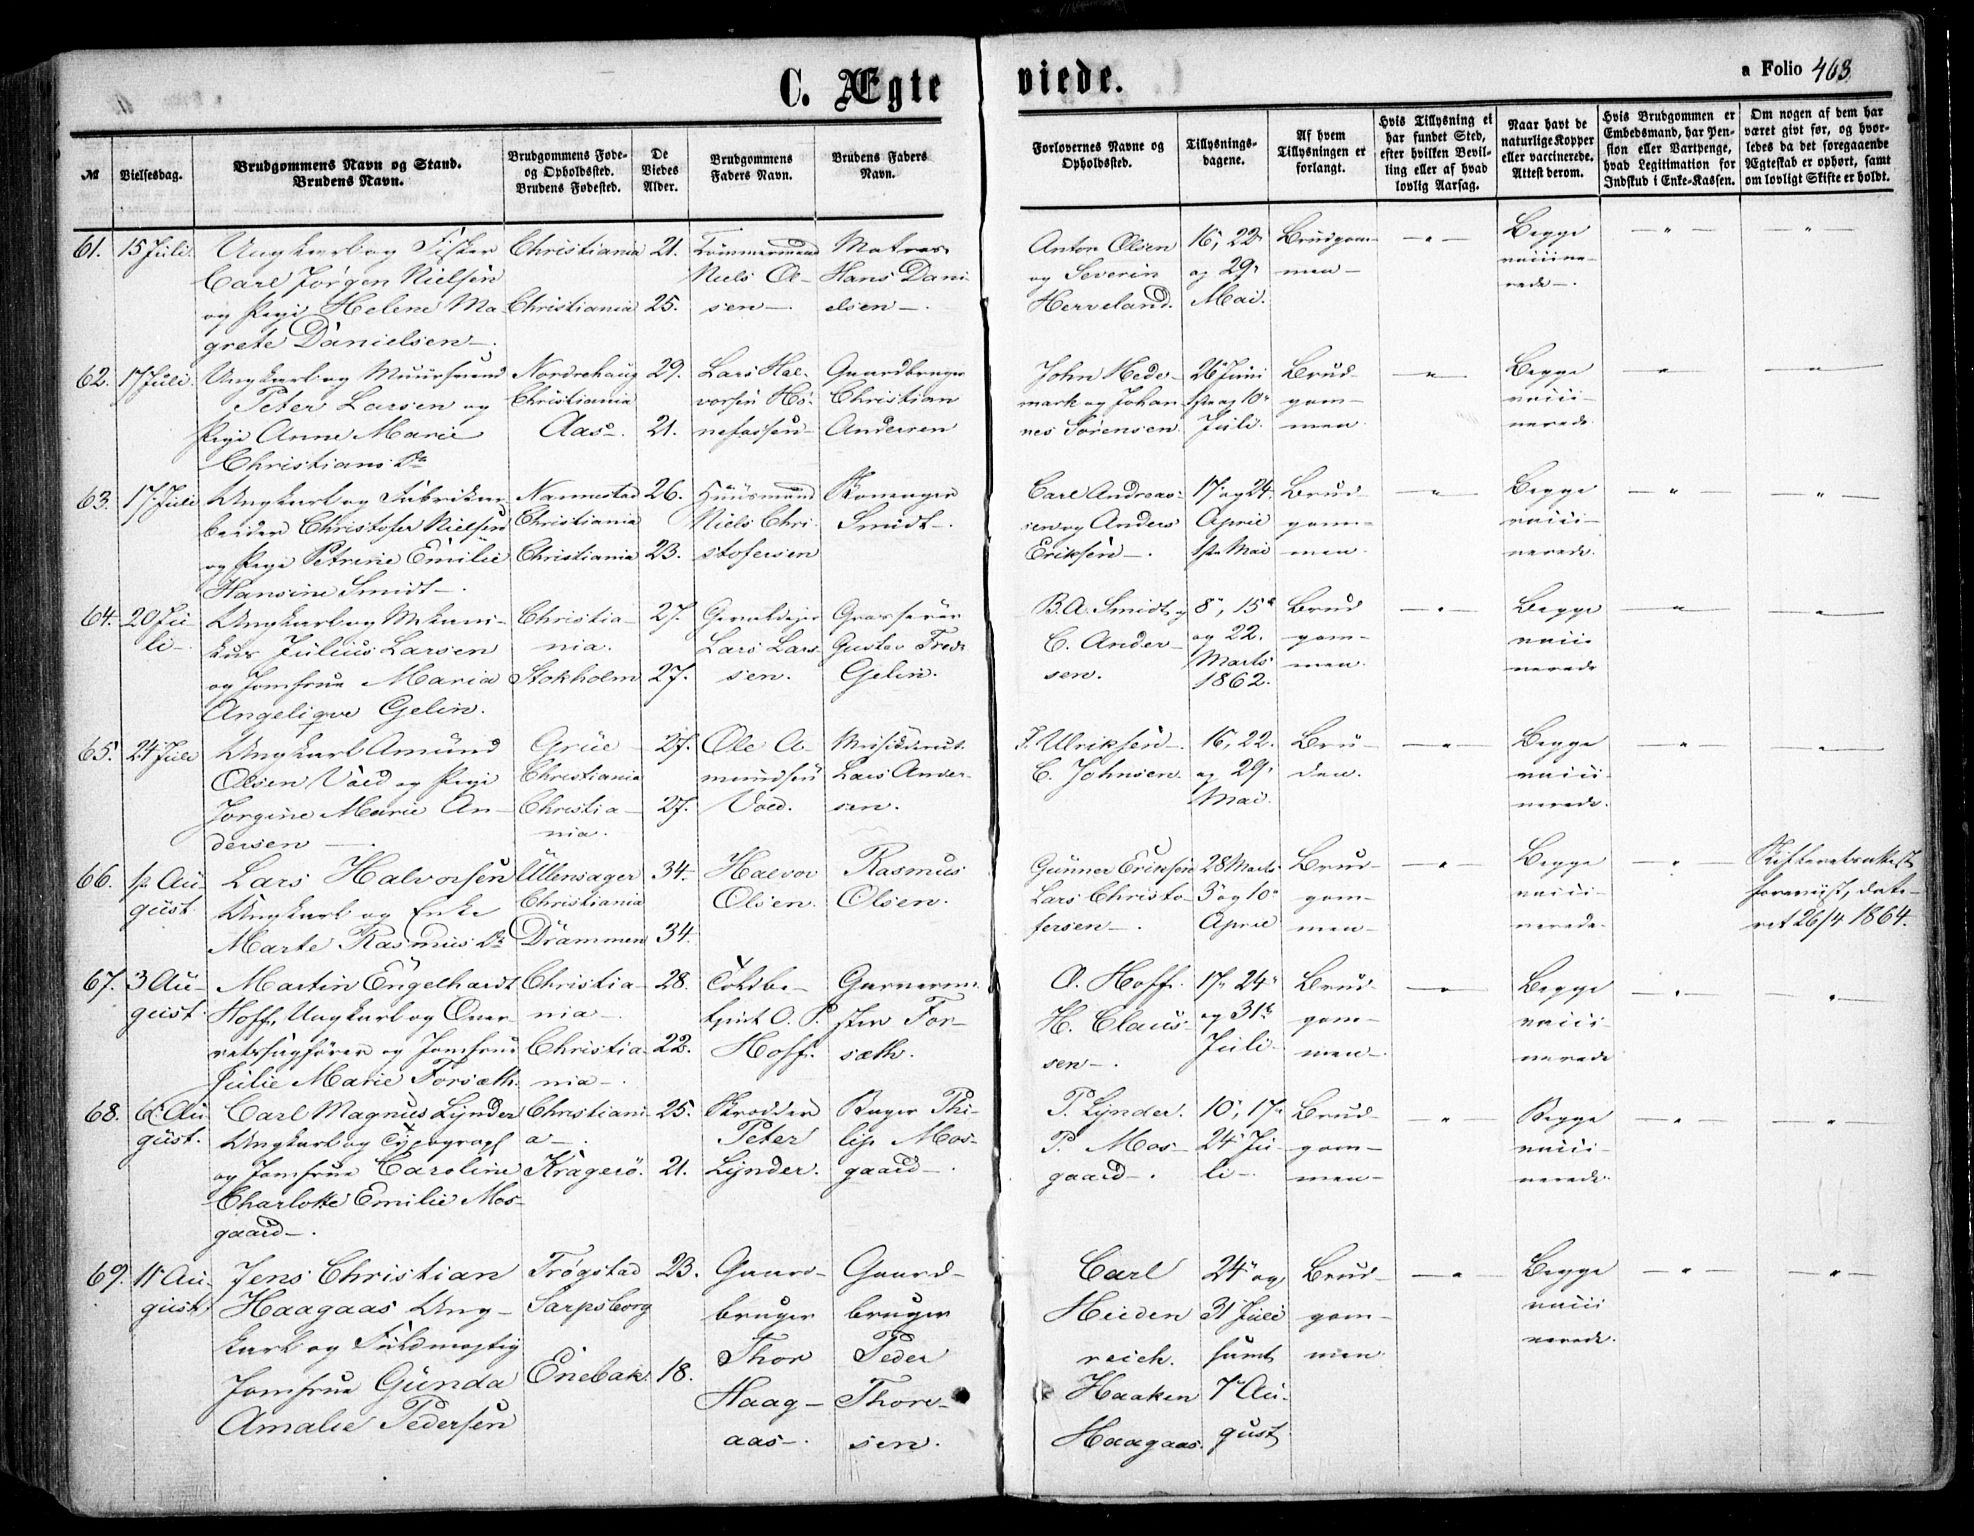 C. Ægte viede.
a Folio 463
№
Vielsesdag.
Brudgommens Navn og Stand.
Brudens Navn.
Brudgommens Føde-
og Opholdssted.
Brudens Fødested.
De
Viedes
Alder.
Brudgommens
Faders Navn.
Brudens Faders
Navn.
Forlovernes Navne og
Opholdssted.
Tillysnings-
dagene.
Af hvem
Tillysningen er
forlangt.
Hvis Tillysning ei
har fundet Sted,
efter hvilken Bevil-
ling eller af hvad
lovlig Aarsag.
Naar havt de
naturlige Kopper
eller vaccinerede.
Attest derom.
Hvis Brudgommen er
Embedsmand, har Pen-
sion eller Vartpenge,
hvad Legitimation for
Indskud i Enke-Kassen.
Om nogen af dem har
været givt før, og hvor-
ledes da det foregaaende
Ægteskab er ophørt, samt
om lovligt Skifte er holdt.
61.
15 Juli
Ungkarl og Fisker
Carl Jørgen Nielsen
og Pige Helene Ma-
grete Danielsen.
Christiania
Christiania
21.
25.
Tømmermand
Niels Ol-
sen.
Matros
Hans Dani-
elsen.
Anton Olsen
og Severin
Herveland.
15, 22
og 29
Mai.
Brudgom-
men
Begge
vacine-
rede.
62.
17 Juli.
Ungkarl og Muursvend
Peter Larsen og
Pige Anne Marie
Christians Dr
Nordrehaug
Christiania
Aas.
29.
21.
Lars Hal-
vorsen Hø-
nefossen
Gaardbruger
Christian
Andersen
John Hede-
mark og Johan-
nes Sørensen
26 Juni
1ste og 10
Juli.
Brud-
gom-
men
Begge
vacci-
nerede
63.
17 Juli
Ungkarl og Fabrikar-
beider Christofer Nielsen
og Pige Petrine Emilie
Hansine Smidt.
Nannestad
Christiania
Christiania
26.
23.
Huusmand
Niels Chri-
stofersen
Smidt.
Carl Andreas-
sen og Anders
Eriksen.
17 og 24
April
1ste Mai
Brud-
gom-
men.
Begge
vacci-
nerede.
64.
20 Ju-
li
Ungkarl og Mekani-
kus Julius Larsen
og Jomfrue Maria
Angelique Gelin.
Christia-
nia.
Stokholm
27.
27.
Lars Lar-
sen.
Grosserer
Gustav Fredr
Gelin.
B. A. Smidt og
C. Ander-
sen.
8, 15
og 22.
Marts
1862.
Brud
gom-
men.
Begge
vacci-
nerede
65.
24 Juli
Ungkarl Amund
Olsen Vold og Pige
Jørgine Marie An-
dersen
Grue
Christiania
Christia-
nia.
27.
27.
Ole A-
mundsen
Vold.
Lars Ander-
sen.
Ulriksen
C. Johnsen
15, 22.
og 29
Mai.
Bru-
den.
Begge
vacci-
nerede.
66.
1ste Au-
gust
Lars Halvorsen
Ungkarl og Enke
Marte Rasmus Dr
Ullensager
Christiania
Drammen
34.
34.
Halvor
Olsen.
Rasmus
Olsen.
Gunner Eriksen
Lars Christo-
fersen.
28 Marts
3 og 10
April
Brud-
gom-
men
Begge
vacci-
nerede.
Skifteretsattest
forevist, date-
ret 26/4 1864.
67.
3 Au-
gust
Martin Engelhardt
Hoff, Ungkarl og Over-
retssagfører og Jomfrue
Julie Marie Forsæth.
Christia-
nia.
Christia-
nia.
28.
22.
Toldbe-
tjent O. P.
Hoff.
Garverme-
ster For-
sæth.
O. Hoff.
H. Claus-
sen.
17, 24
og 31
Juli
Brud-
gom-
men
Begge
vacci-
nerede
68.
6 Au-
gust.
Carl Magnus Lynder
Ungkarl og Typograf
og Jomfrue Caroline
Charlotte Emilie Mos-
gaard.
Christiani-
a.
Kragerö.
25.
21.
Skrædder
Peter
Lynder.
Bager Phi-
lip Mos-
gaard.
P. Lynder.
P. Mos-
gaard.
10, 17
24 Ju-
li
Brud-
gom-
men
Begge
vacci-
nerede.
69.
11 Au-
gust
Jens Christian
Haagaas Ung-
karl og Fuldmægtig
Jomfrue Gunda
Amalie Pedersen
Trøgstad
Sarpsborg
Enebak
23.
18.
Gaard-
bruger
Thor
Haag-
aas.
Gaard-
bruger
Peder
Thore-
sen.
Carl
Heiden
reich.
Haaken
Haagaas.
24 og
31 Juli
samt
7 Au-
gust
Brud-
gom-
men.
Begge
vacci
nerede.